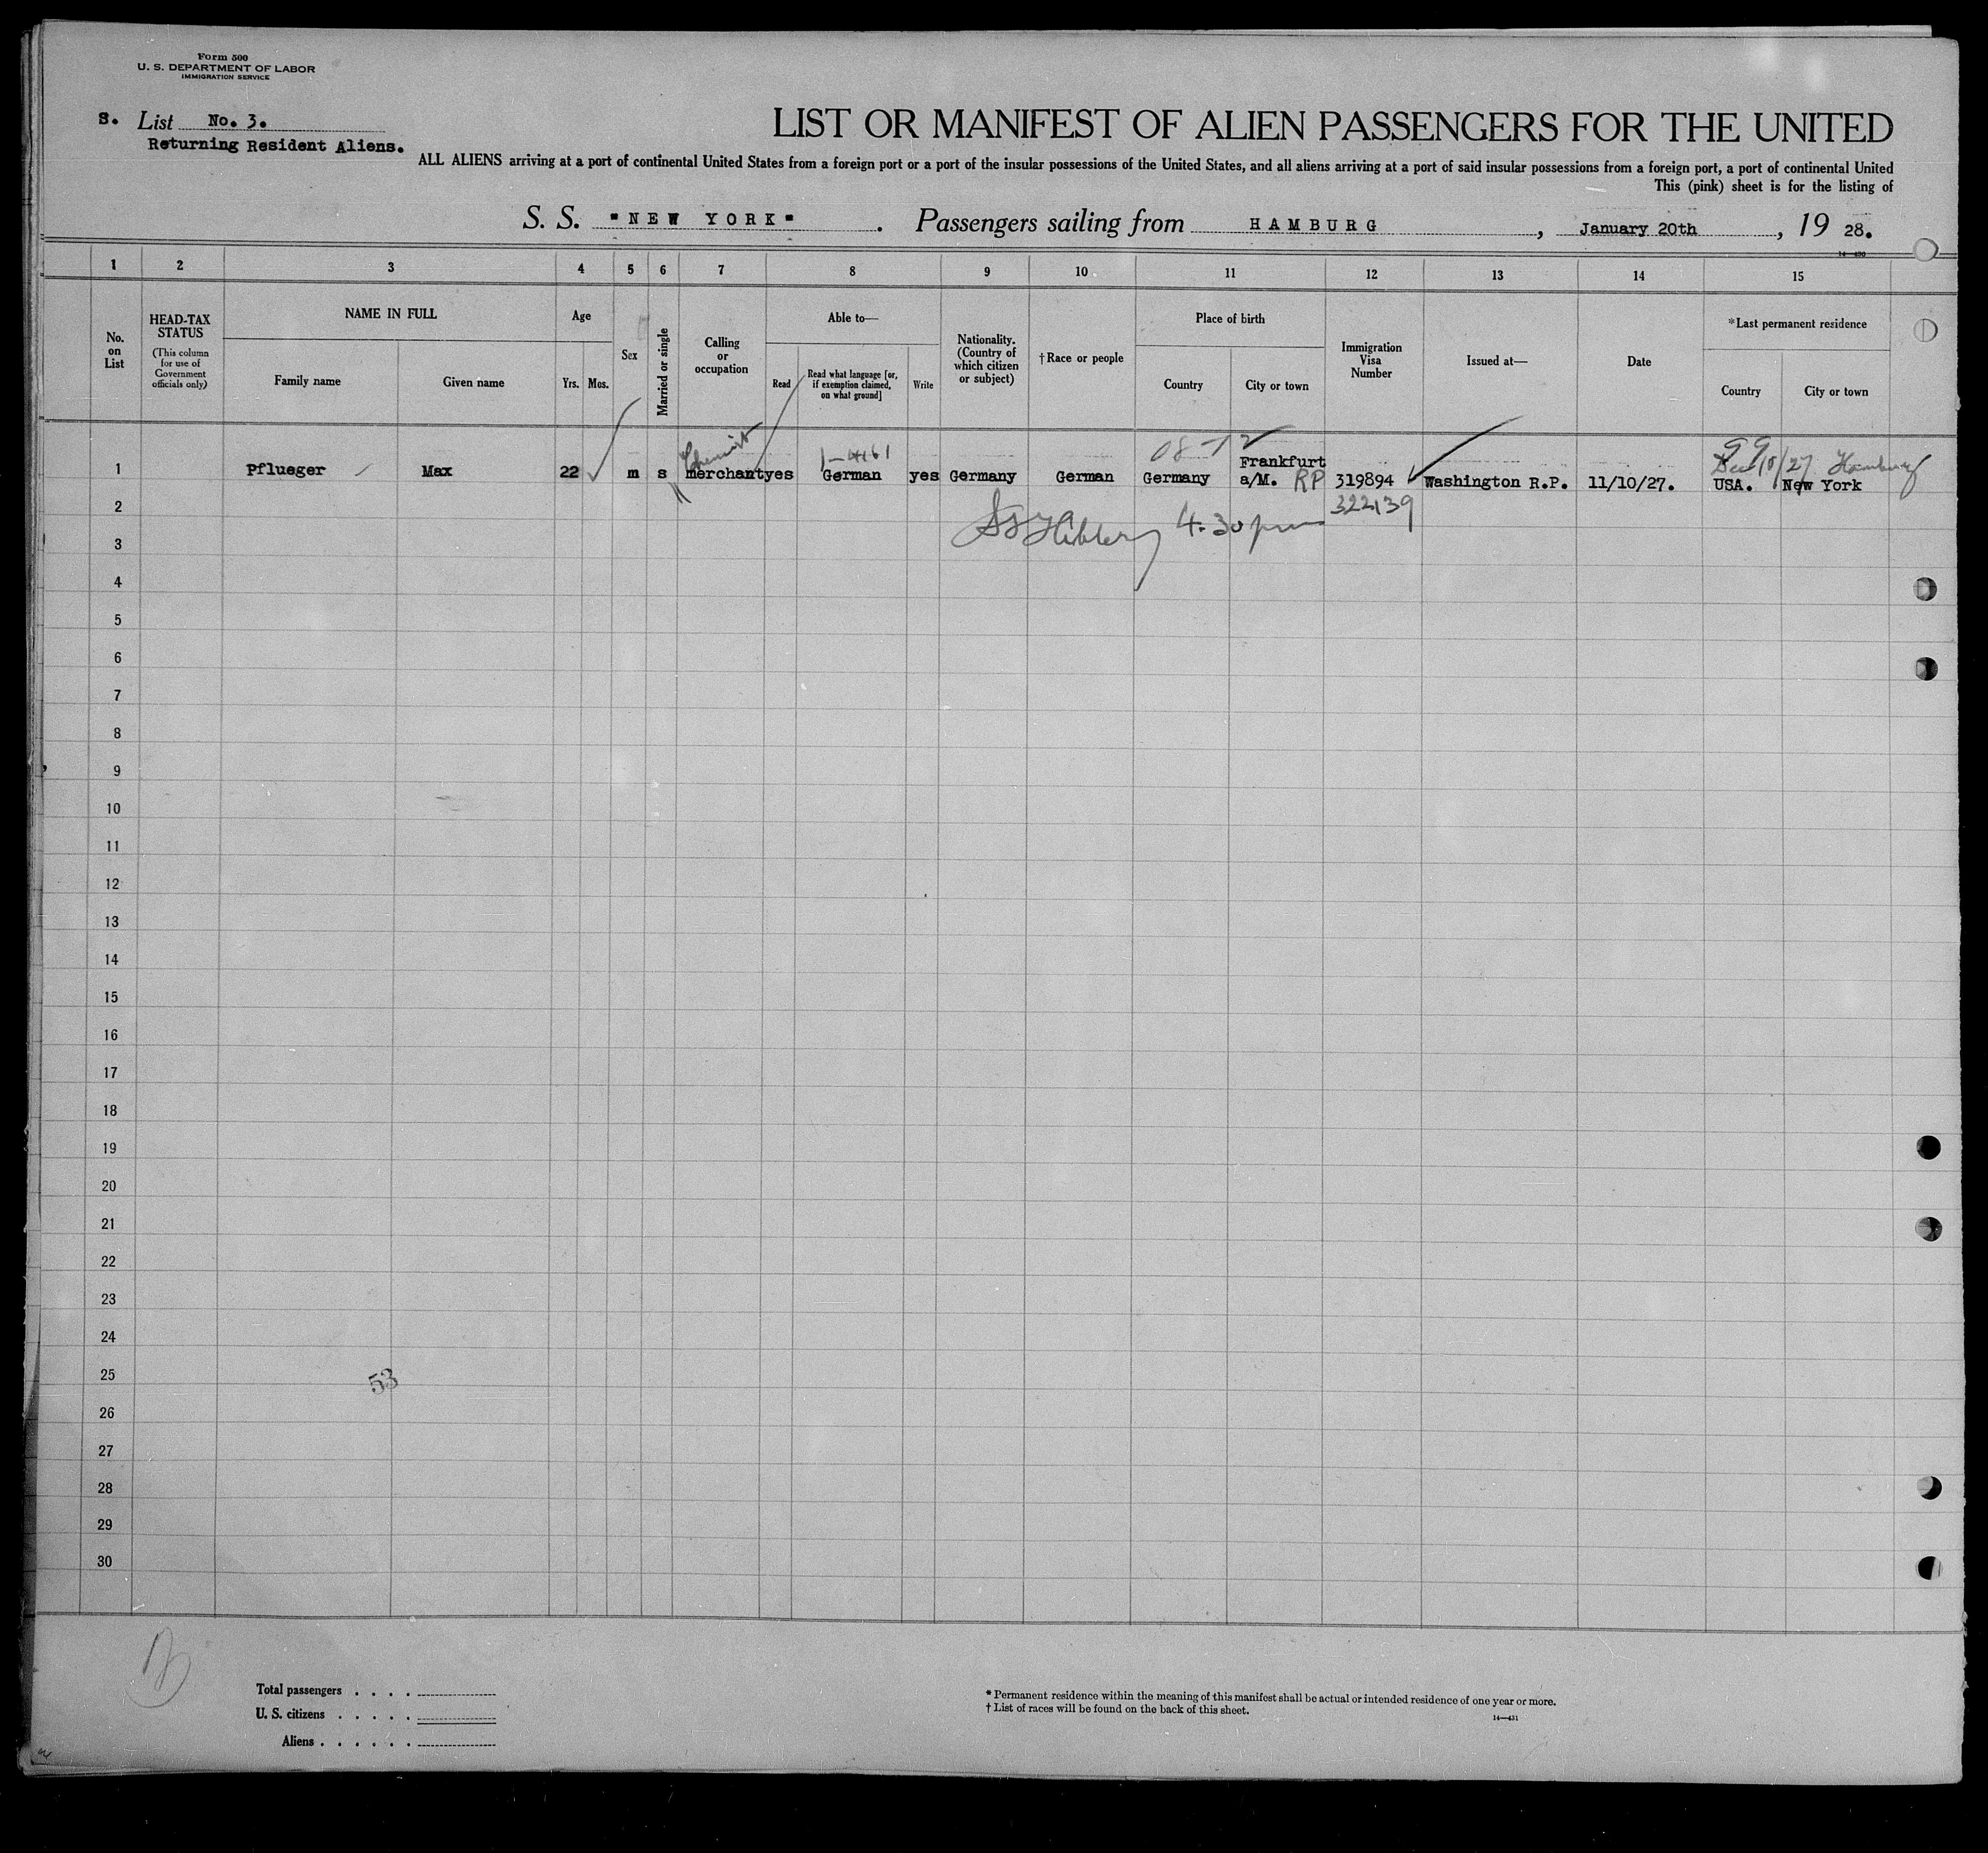 Form 500
U. S. DEPARTMENT OF LABOR
IMMIGRATION SERVICE
S. List No. 3.
Returning Resident Aliens.
LIST OR MANIFEST OF ALIEN PASSENGERS FOR THE UNITED
ALL ALIENS arriving at a port of continental United States from a foreign port or a port of the insular possessions of the United States, and all aliens arriving at a port of said insular possessions from a foreign port, a port of continental United
This (pink) sheet is for the listing of
S. S. "NEW YORK". Passengers sailing from HAMBURG, January 20th, 1928.
14—430
1 2 3 4 5 6 7 8 9 10 11 12 13 14 15
No. on List
HEAD-TAX STATUS
(This column for use of Government officials only)
NAME IN FULL
Family name
Given name
Age
Yrs. Mos.
Sex
Married or single
Calling or occupation
Able to—
Read
Read what language [or, if exemption claimed, on what ground]
Write
Nationality. (Country of which citizen or subject)
†Race or people
Place of birth
Country
City or town
Immigration Visa Number
Issued at—
Date
*Last permanent residence
Country
City or town
Chemist 1-4161 08-12 99
Dec 10/27 Hamburg
1 Pflueger Max 22 m s merchant yes German yes Germany German Germany Frankfurt a/M. RP 319894 Washington R.P. 11/10/27. USA. New York
2 322139
4.30 pm
3
4
5
6
7
8
9
10
11
12
13
14
15
16
17
18
19
20
21
22
23
24
25
53
26
27
28
29
30
Total passengers . . . .
U. S. citizens . . . . .
Aliens . . . . . .
* Permanent residence within the meaning of this manifest shall be actual or intended residence of one year or more.
† List of races will be found on the back of this sheet.
14—431